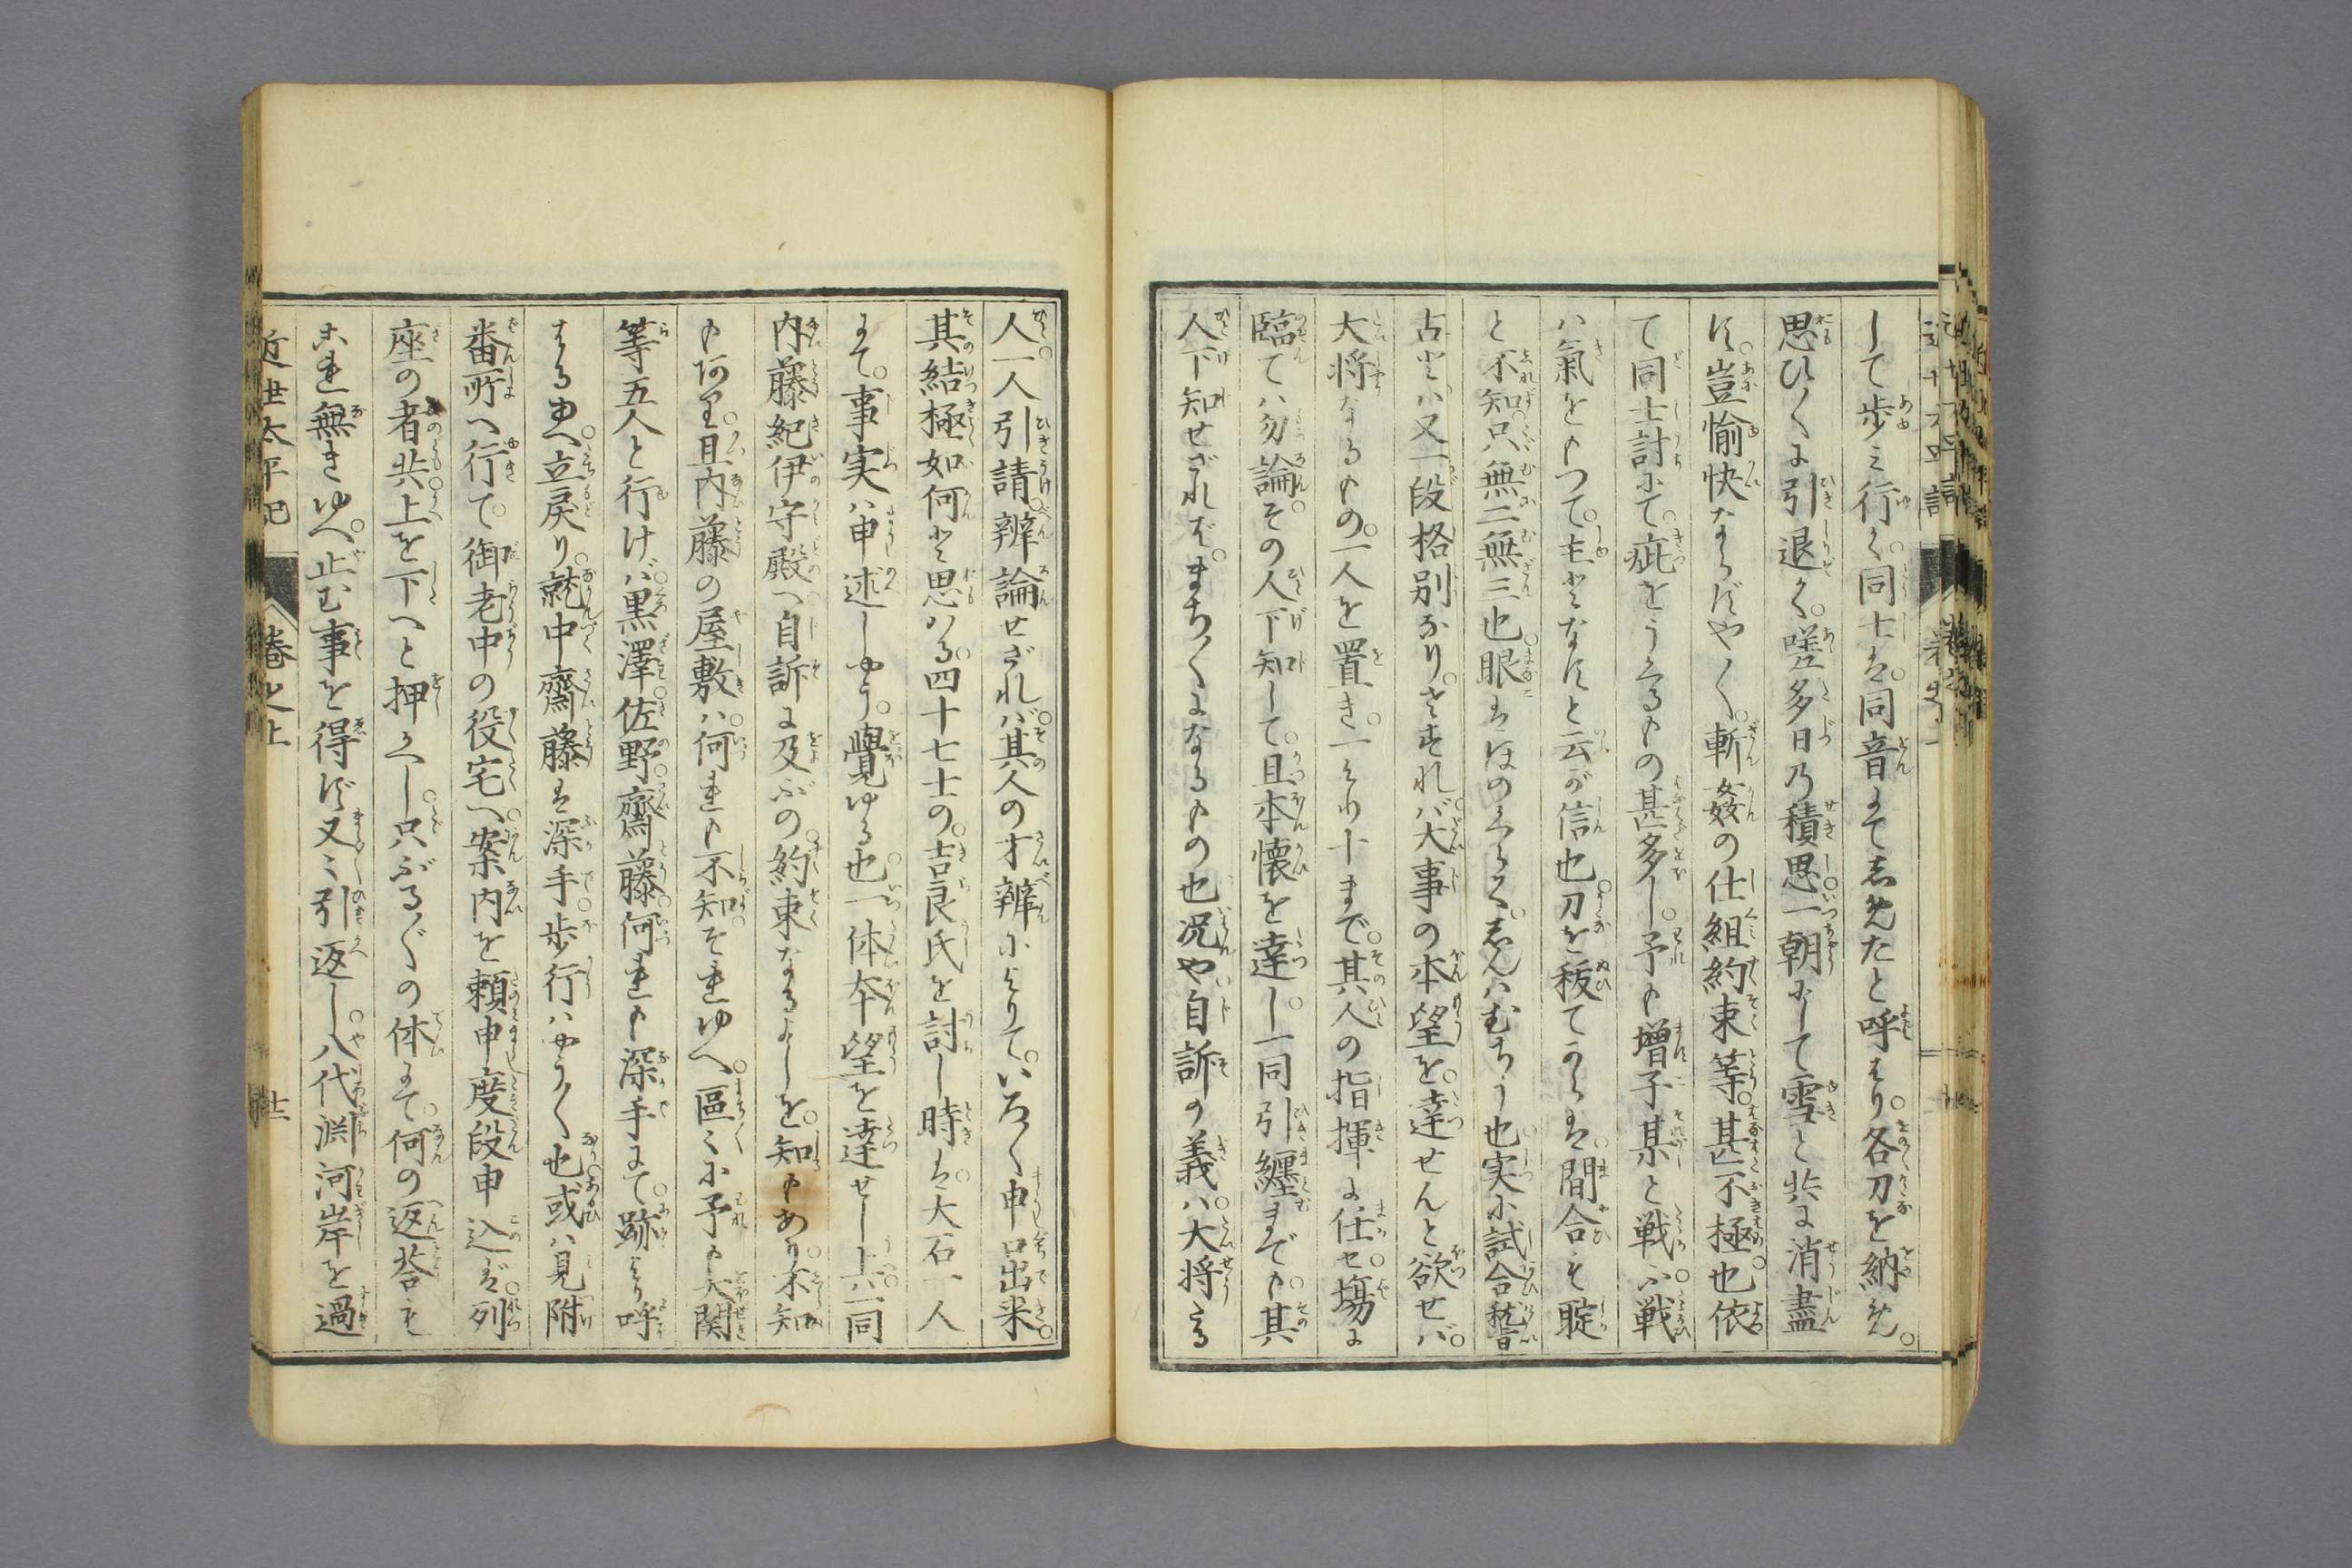 して歩ミ行く。同士は。同音にて志めたと呼はり。各刀を納めん。
思ひ〱に引退く。嗟多日乃積思一朝にして雪と共に消盡
す。豈愉快ならずや〱。斬姦の仕組約束等。甚不極也依
て同士討にて。疵をうくるもの甚多し。予も増子某と戦ふ戦
ハ氣をもつて。主となすと云が信也。刀を抜てからは。間合も聢
と不知只無二無三也。眼はほのくらく。志んハむちう也。実に試合稽
古とハ。又一段格別なり。さすれバ大事の本望を。達せんと欲せバ。
大将なるもの。一人を置き。一より十まで。其人の指揮に任せ。塲に
臨てハ勿論。その人下知して。且本懐を達し。一同引纏まても。其
人下知せざれば。まち〱になるもの也。况や自訴の義ハ。大将たる
人。一人引請。辨論せざれバ。其人の才辨により て。いろ〱申口出来。
其結極如何と思ハる。四十七士の。吉良氏を討し時は。大石一人
にて。事実ハ申述しゆう。覺ゆる也。一体本望を達せし上。一同
内藤紀伊守殿へ自訴に及ぶの。約束なるよしを。知もあり。不知
も阿り。且内藤の屋敷ハ。何れも不知。それゆへ。區〻に予も大関
等五人と行けバ。黒澤。佐野。齋藤。何れも深手にて。跡より呼
はるゆへ。立戻り。就中齋藤は深手。歩行ハやう〱也。或ハ見附
番所へ行て。御老中の役宅へ。案内を頼申度段申込ば。列
座の者共。上を下へと押かへし。只ぶる〲の体にて。何の返荅も
これ無きゆへ。止む事を得ず又〻引返し。八代渕河岸を過
近世太平記 巻之上 廿